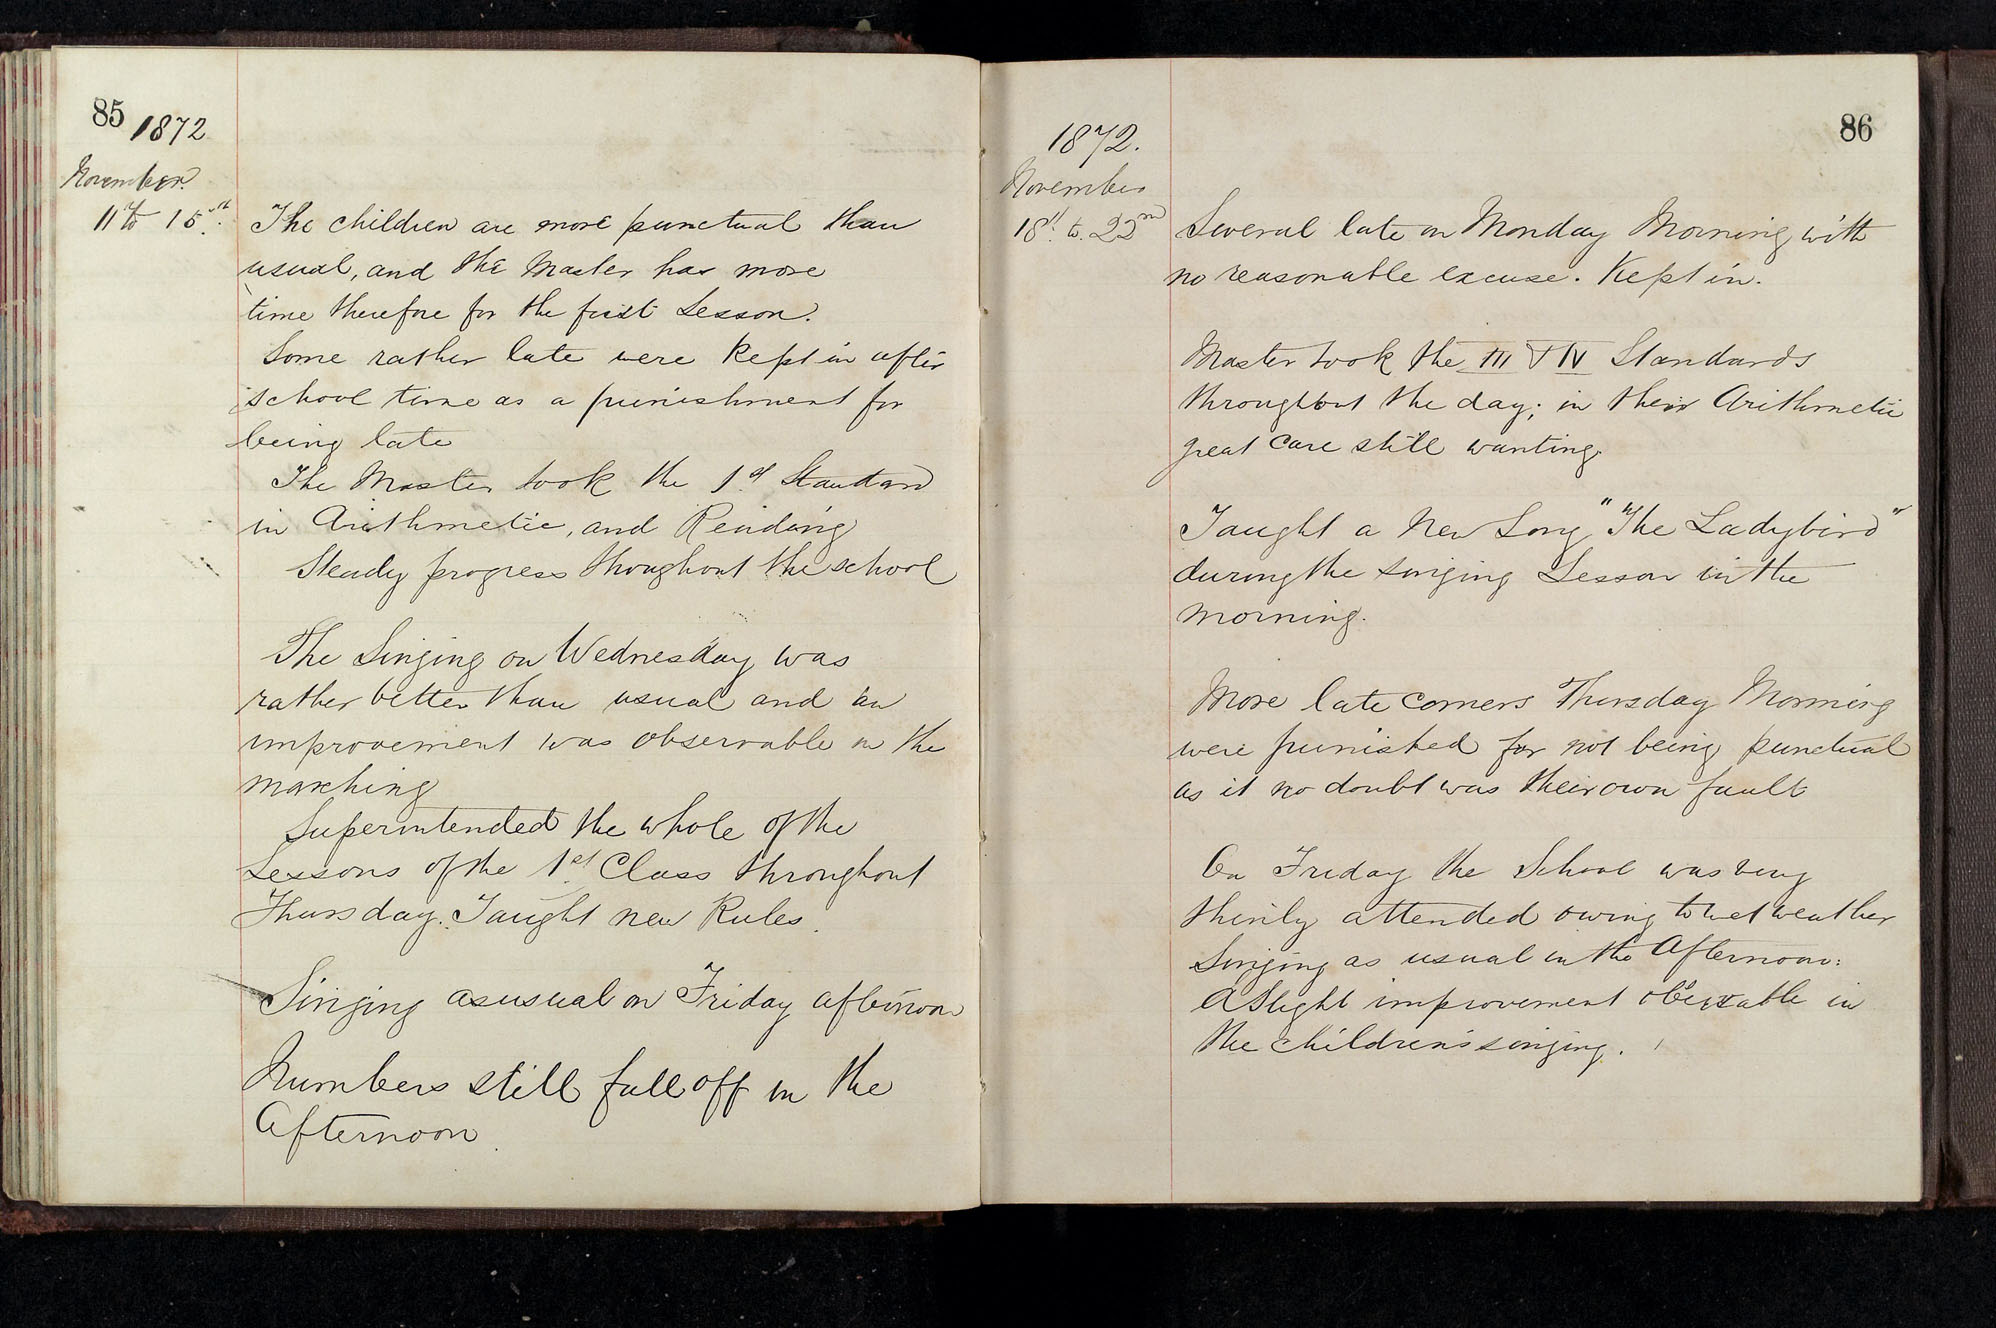 85 1872
November.
11th to 15th.
The children are more punctual than
usual, and the Master has more
time therefore for the first Lesson.
Some rather late were kept in after
school time as a punishment for
being late
The Master took the 1st Standard
in Arithmetic, and Reading
Steady progress throughout the school
The Singing on Wednesday was
rather better than usual and an
improvement was observable in the
marching
Superintended the whole of the
Lessons of the 1st Class throughout
Thursday. Taught new Rules.
Singing as usual on Friday afternoon
Numbers still fall off in the
Afternoon.
86
1872.
November
18th. to. 22nd
Several late on Monday Morning with
no reasonable excuse. Kept in.
Master took the III & IV Standards
throughout the day; in their Arithmetic
great care still wanting.
Taught a New Song "The Ladybird"
during the singing Lesson in the
morning.
More late comers Thursday Morning
were punished for not being punctual
as it no doubt was their own fault
On Friday the School was very
thinly attended owing to wet weather
Singing as usual in the Afternoon:
A slight improvement observable in
the children's singing.